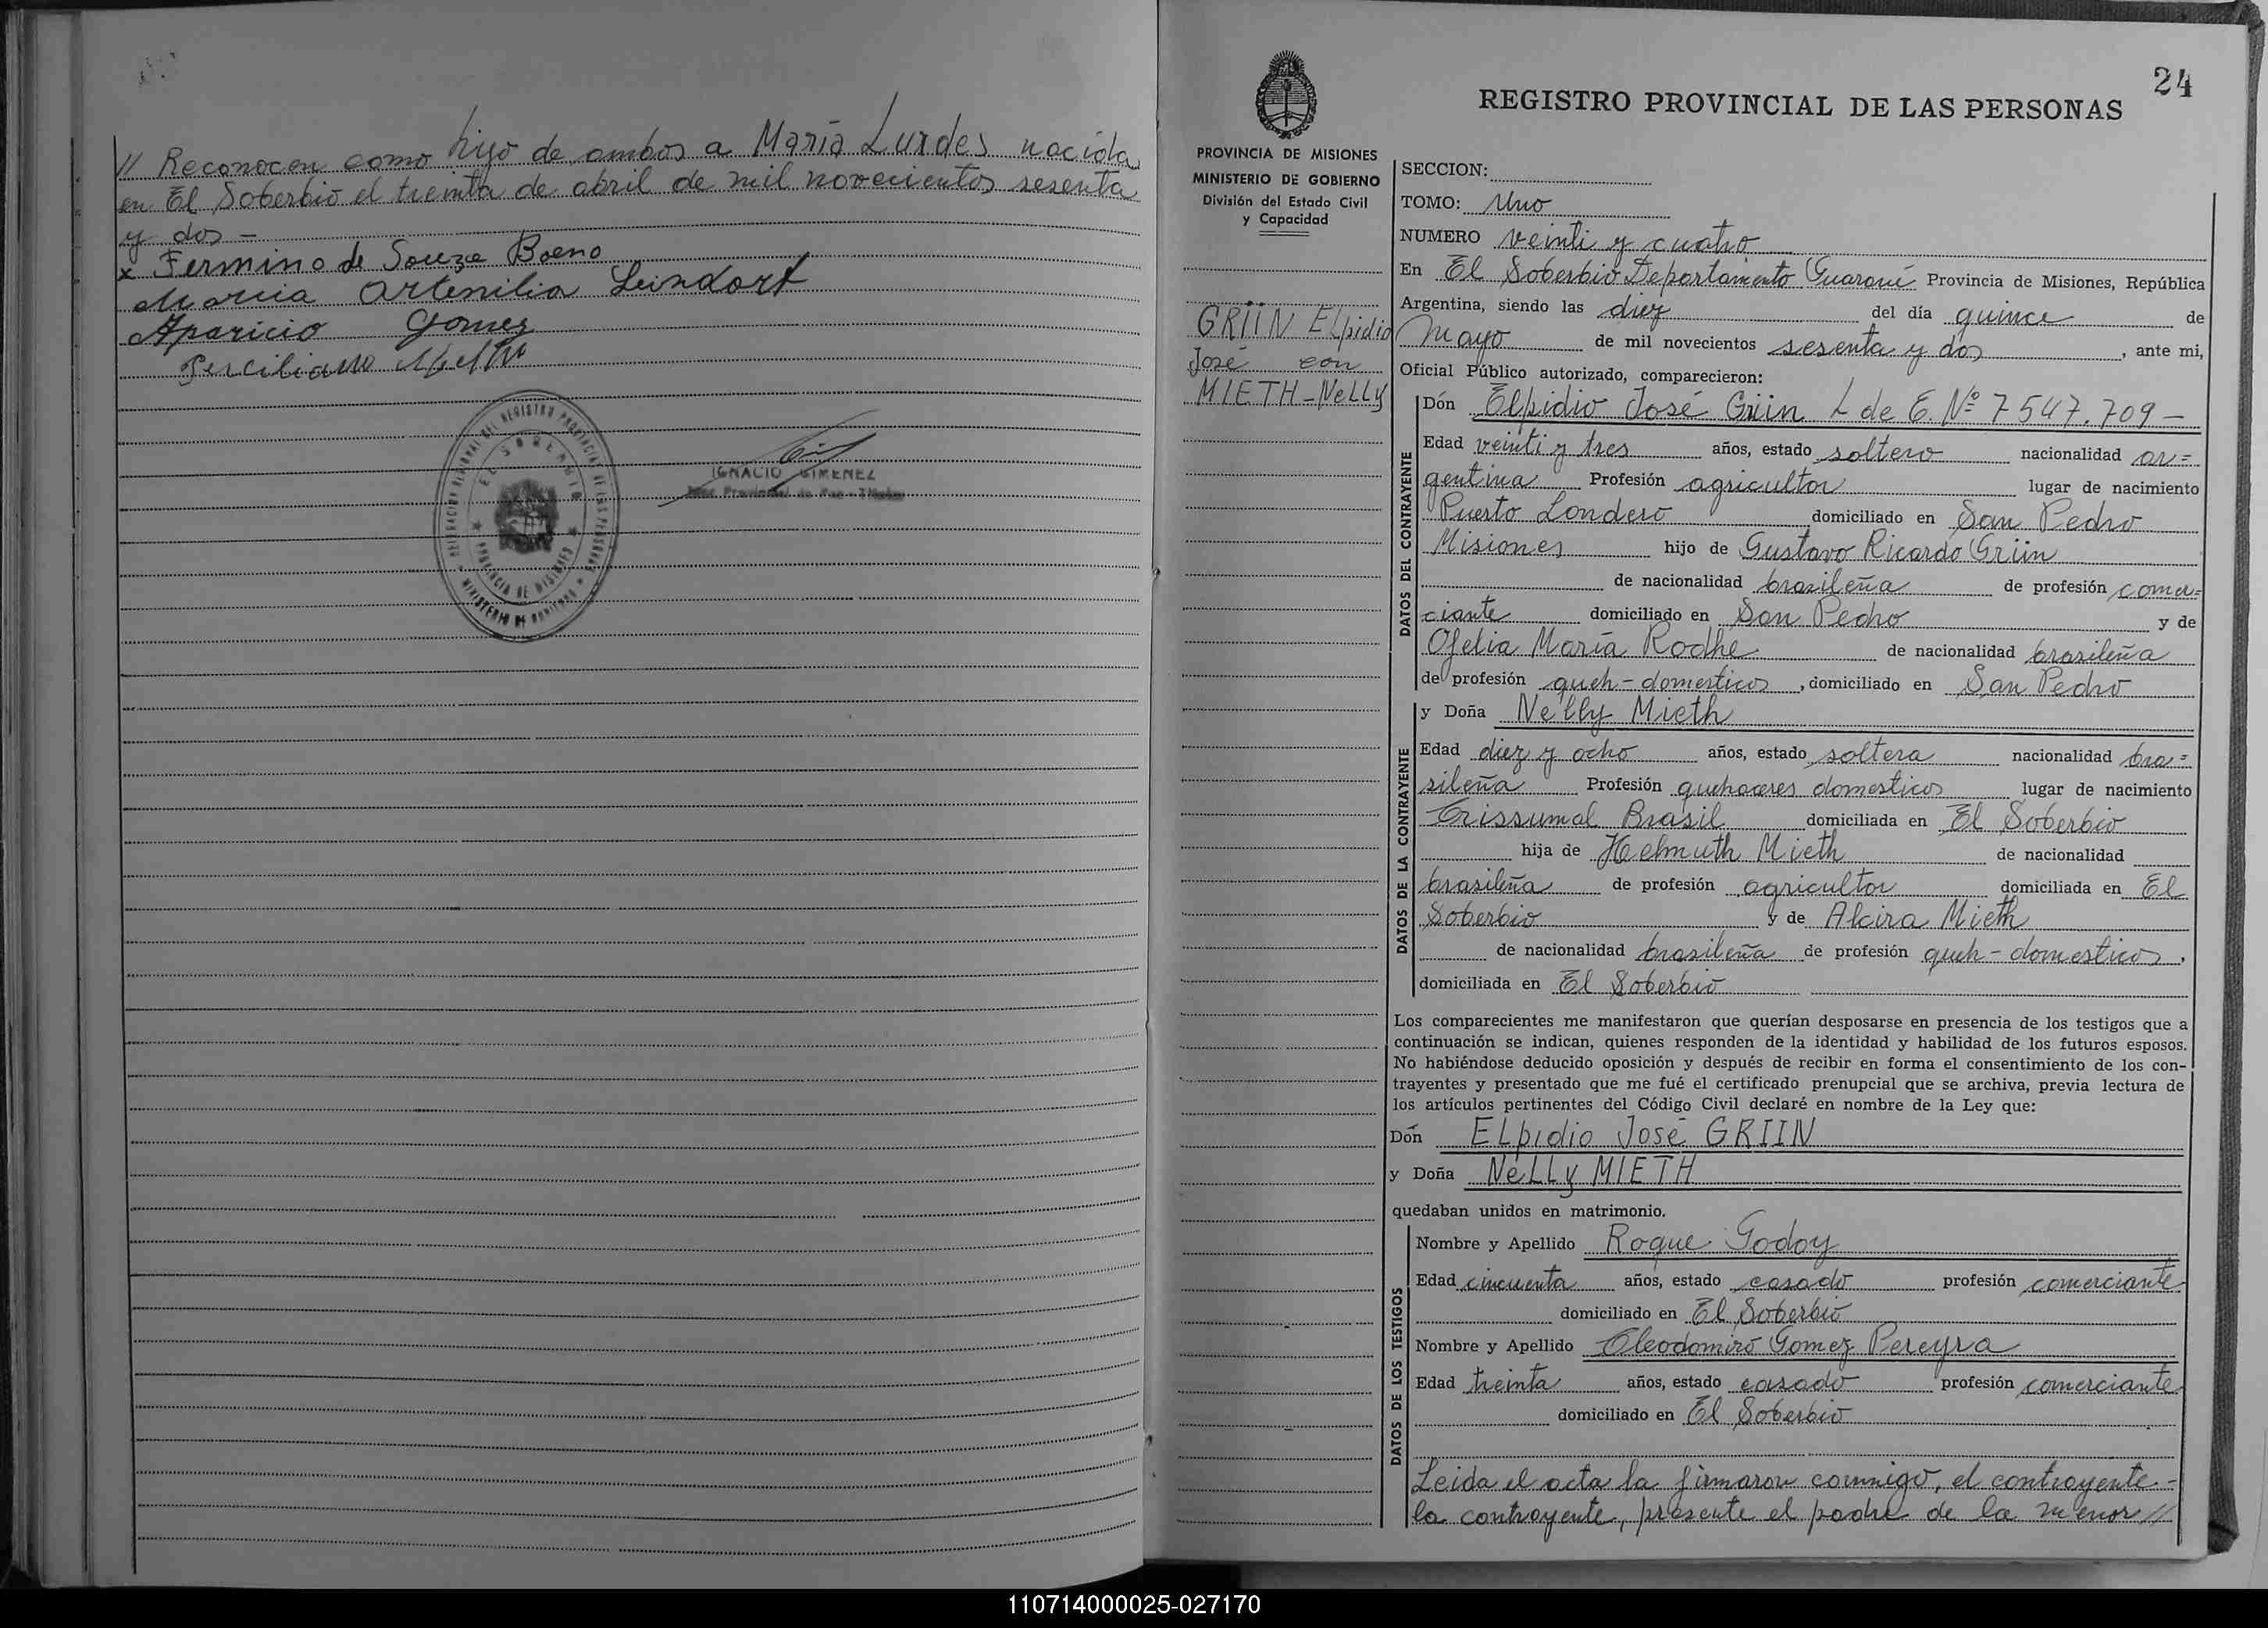 // Reconocen como hijo de ambos a María Lurdes nacida
en El Soberbio el treinta de abril de mil novecientos sesenta
y dos -
x Fermino de Souza Boeno
Maria Artenilia Leindorf
Aparicio Gomez
IGNACIO GIMENEZ
EL SOBERBIO
PROVINCIA DE MISIONES
24
REGISTRO PROVINCIAL DE LAS PERSONAS
PROVINCIA DE MISIONES
MINISTERIO DE GOBIERNO
División del Estado Civil
y Capacidad
GRIIN ELpidio
José con
MIETH - NeLLy
SECCION:
TOMO: Uno
NUMERO veinti y cuatro
En El Soberbio Departamento Guaraní Provincia de Misiones, República
Argentina, siendo las diez del día quince de
Mayo de mil novecientos sesenta y dos, ante mi,
Oficial Público autorizado, comparecieron:
DATOS DEL CONTRAYENTE
Dón Elpidio José Griin L de E. Nº 7547.709 -
Edad veinti y tres años, estado soltero nacionalidad ar=
gentina Profesión agricultor lugar de nacimiento
Puerto Londero domiciliado en San Pedro
Misiones hijo de Gustavo Ricardo Griin
de nacionalidad brasileña de profesión comer=
ciante domiciliado en San Pedro y de
Ofelia María Rodhe de nacionalidad brasileña
de profesión queh-domesticos, domiciliado en San Pedro
DATOS DE LA CONTRAYENTE
y Doña Nelly Mieth
Edad diez y ocho años, estado soltera nacionalidad bra=
sileña Profesión quehaceres domesticos lugar de nacimiento
Crissumal Brasil domiciliada en El Soberbio
hija de Helmuth Mieth de nacionalidad
brasileña de profesión agricultor domiciliada en El
Soberbio y de Alcira Mieth
de nacionalidad brasileña de profesión queh-domesticos,
domiciliada en El Soberbio
Los comparecientes me manifestaron que querían desposarse en presencia de los testigos que a
continuación se indican, quienes responden de la identidad y habilidad de los futuros esposos.
No habiéndose deducido oposición y después de recibir en forma el consentimiento de los con-
trayentes y presentado que me fué el certificado prenupcial que se archiva, previa lectura de
los artículos pertinentes del Código Civil declaré en nombre de la Ley que:
Dón ELpidio José GRIIN
y Doña NeLLy MIETH
quedaban unidos en matrimonio.
DATOS DE LOS TESTIGOS
Nombre y Apellido Roque Godoy
Edad cincuenta años, estado casado profesión comerciante
domiciliado en El Soberbio
Nombre y Apellido Cleodomiro Gomez Pereyra
Edad treinta años, estado casado profesión comerciante
domiciliado en El Soberbio
Leida el acta la firmaron conmigo, el contrayente -
la contrayente, presente el padre de la menor //
110714000025-027170